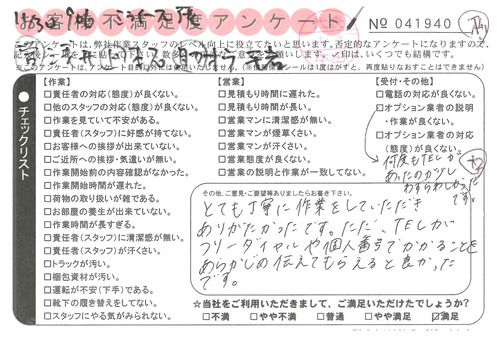 お客様不満足度アンケート
No 041940
このアンケートは、弊社作業スタッフのレベル向上に役立てたいと思います。否定的なアンケートになりますので、
チェックリスト
【作業】
□責任者の対応(態度)が良くない。
□他のスタッフの対応(態度)が良くない。
□作業を見ていて不安がある。
□責任者(スタッフ)に好感が持てない。
□お客様への挨拶が出来ていない。
□ご近所への挨拶・気遣いが無い。
□作業開始前の内容確認がなかった。
□作業開始時間が遅れた。
□荷物の取り扱いが雑である。
□お部屋の養生が出来ていない。
□作業時間が長すぎる。
□責任者(スタッフ)に清潔感が無い。
□責任者(スタッフ)が汗くさい。
□トラックが汚い。
□梱包資材が汚い。
□運転が不安(下手)である。
□靴下の履き替えをしてない。
□スタッフにやる気がみられない。
【営業】
□見積もり時間に遅れた。
□見積もり時間が長い。
□営業マンに清潔感が無い。
□営業マンが煙草くさい。
□営業マンが汗くさい。
□営業態度が良くない。
□営業の説明と作業が良くない。
【受付・その他】
□電話の対応が良くない。
□オプション業者の説明
・作業が良くない。
□オプション業者の対応
(態度)が良くない。
何度もTELが
あったのが少し
わずらわしかった
です。
その他、ご意見・ご要望等ありましたらお書き下さい。
とても丁寧に作業をしていただき
ありがたかったです。ただ、TELが
フリーダイヤルや個人番号でかかることを
あらかじめ伝えてもらえると良かった
です。
☆当社をご利用いただきまして、ご満足いただけたでしょうか?
□不満 □やや不満 □普通 □やや満足 ☑満足